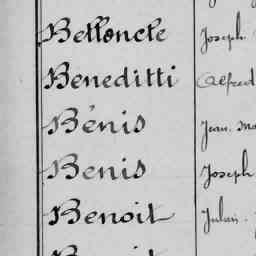 Belloncle Joseph
Beneditti Alfred
Bénis Jean
Benis Joseph
Benoit